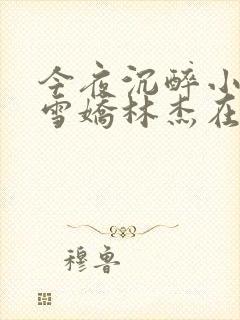 今夜沉醉小
雪嬌林杰在
穆鲁